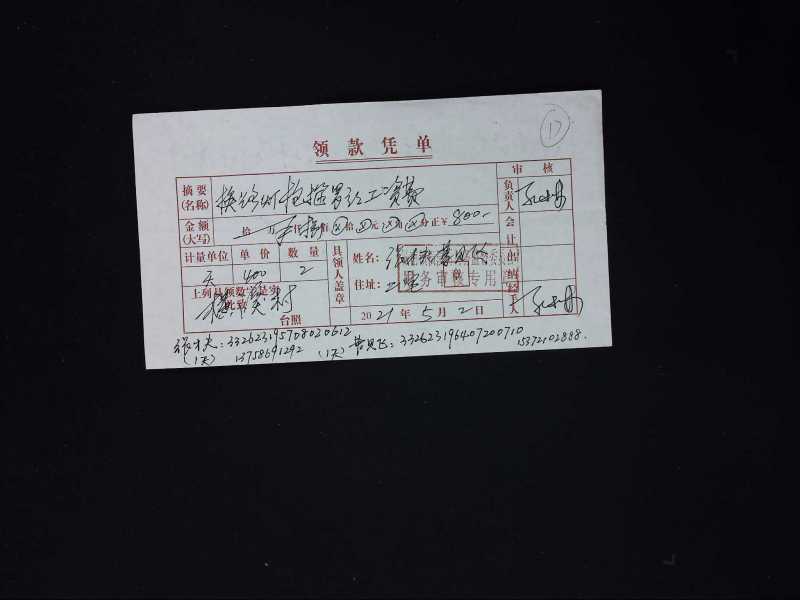 17
领款凭单
摘要(名称) 换路灯 工资费 审核
负责人
金额(大写) 拾 万 仟 捌佰 拾 元 角 分正 ¥ 800- 会计
计量单位 单价 数量 具领人盖章 姓名: 出纳
天 400 2 住址: 财务审核专用章
上列具领数字是实
此致 经手人
村 台照 2021年5月2日
张才夫: 332623195708020612 曹见飞: 332623196407200710
(1天) 13758691292 (1天) 15372102888.